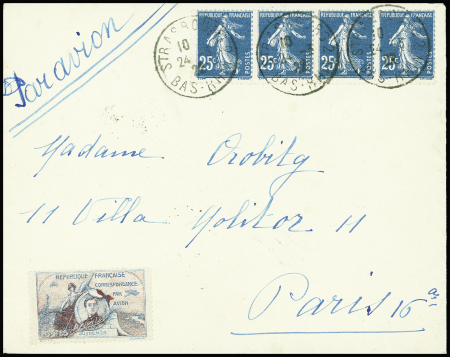 Par avion
RÉPUBLIQUE FRANÇAISE RÉPUBLIQUE FRANÇAISE RÉPUBLIQUE FRANÇAISE RÉPUBLIQUE FRANÇAISE
25c POSTES 25c POSTES 25c POSTES 25c POSTES
STRASBO
10
24
BAS-RH
Madame Orobitg
11 Villa Molitor 11
Paris 16
RÉPUBLIQUE FRANÇAISE
CORRESPONDANCE
PAR
AVION
GUYNEMER